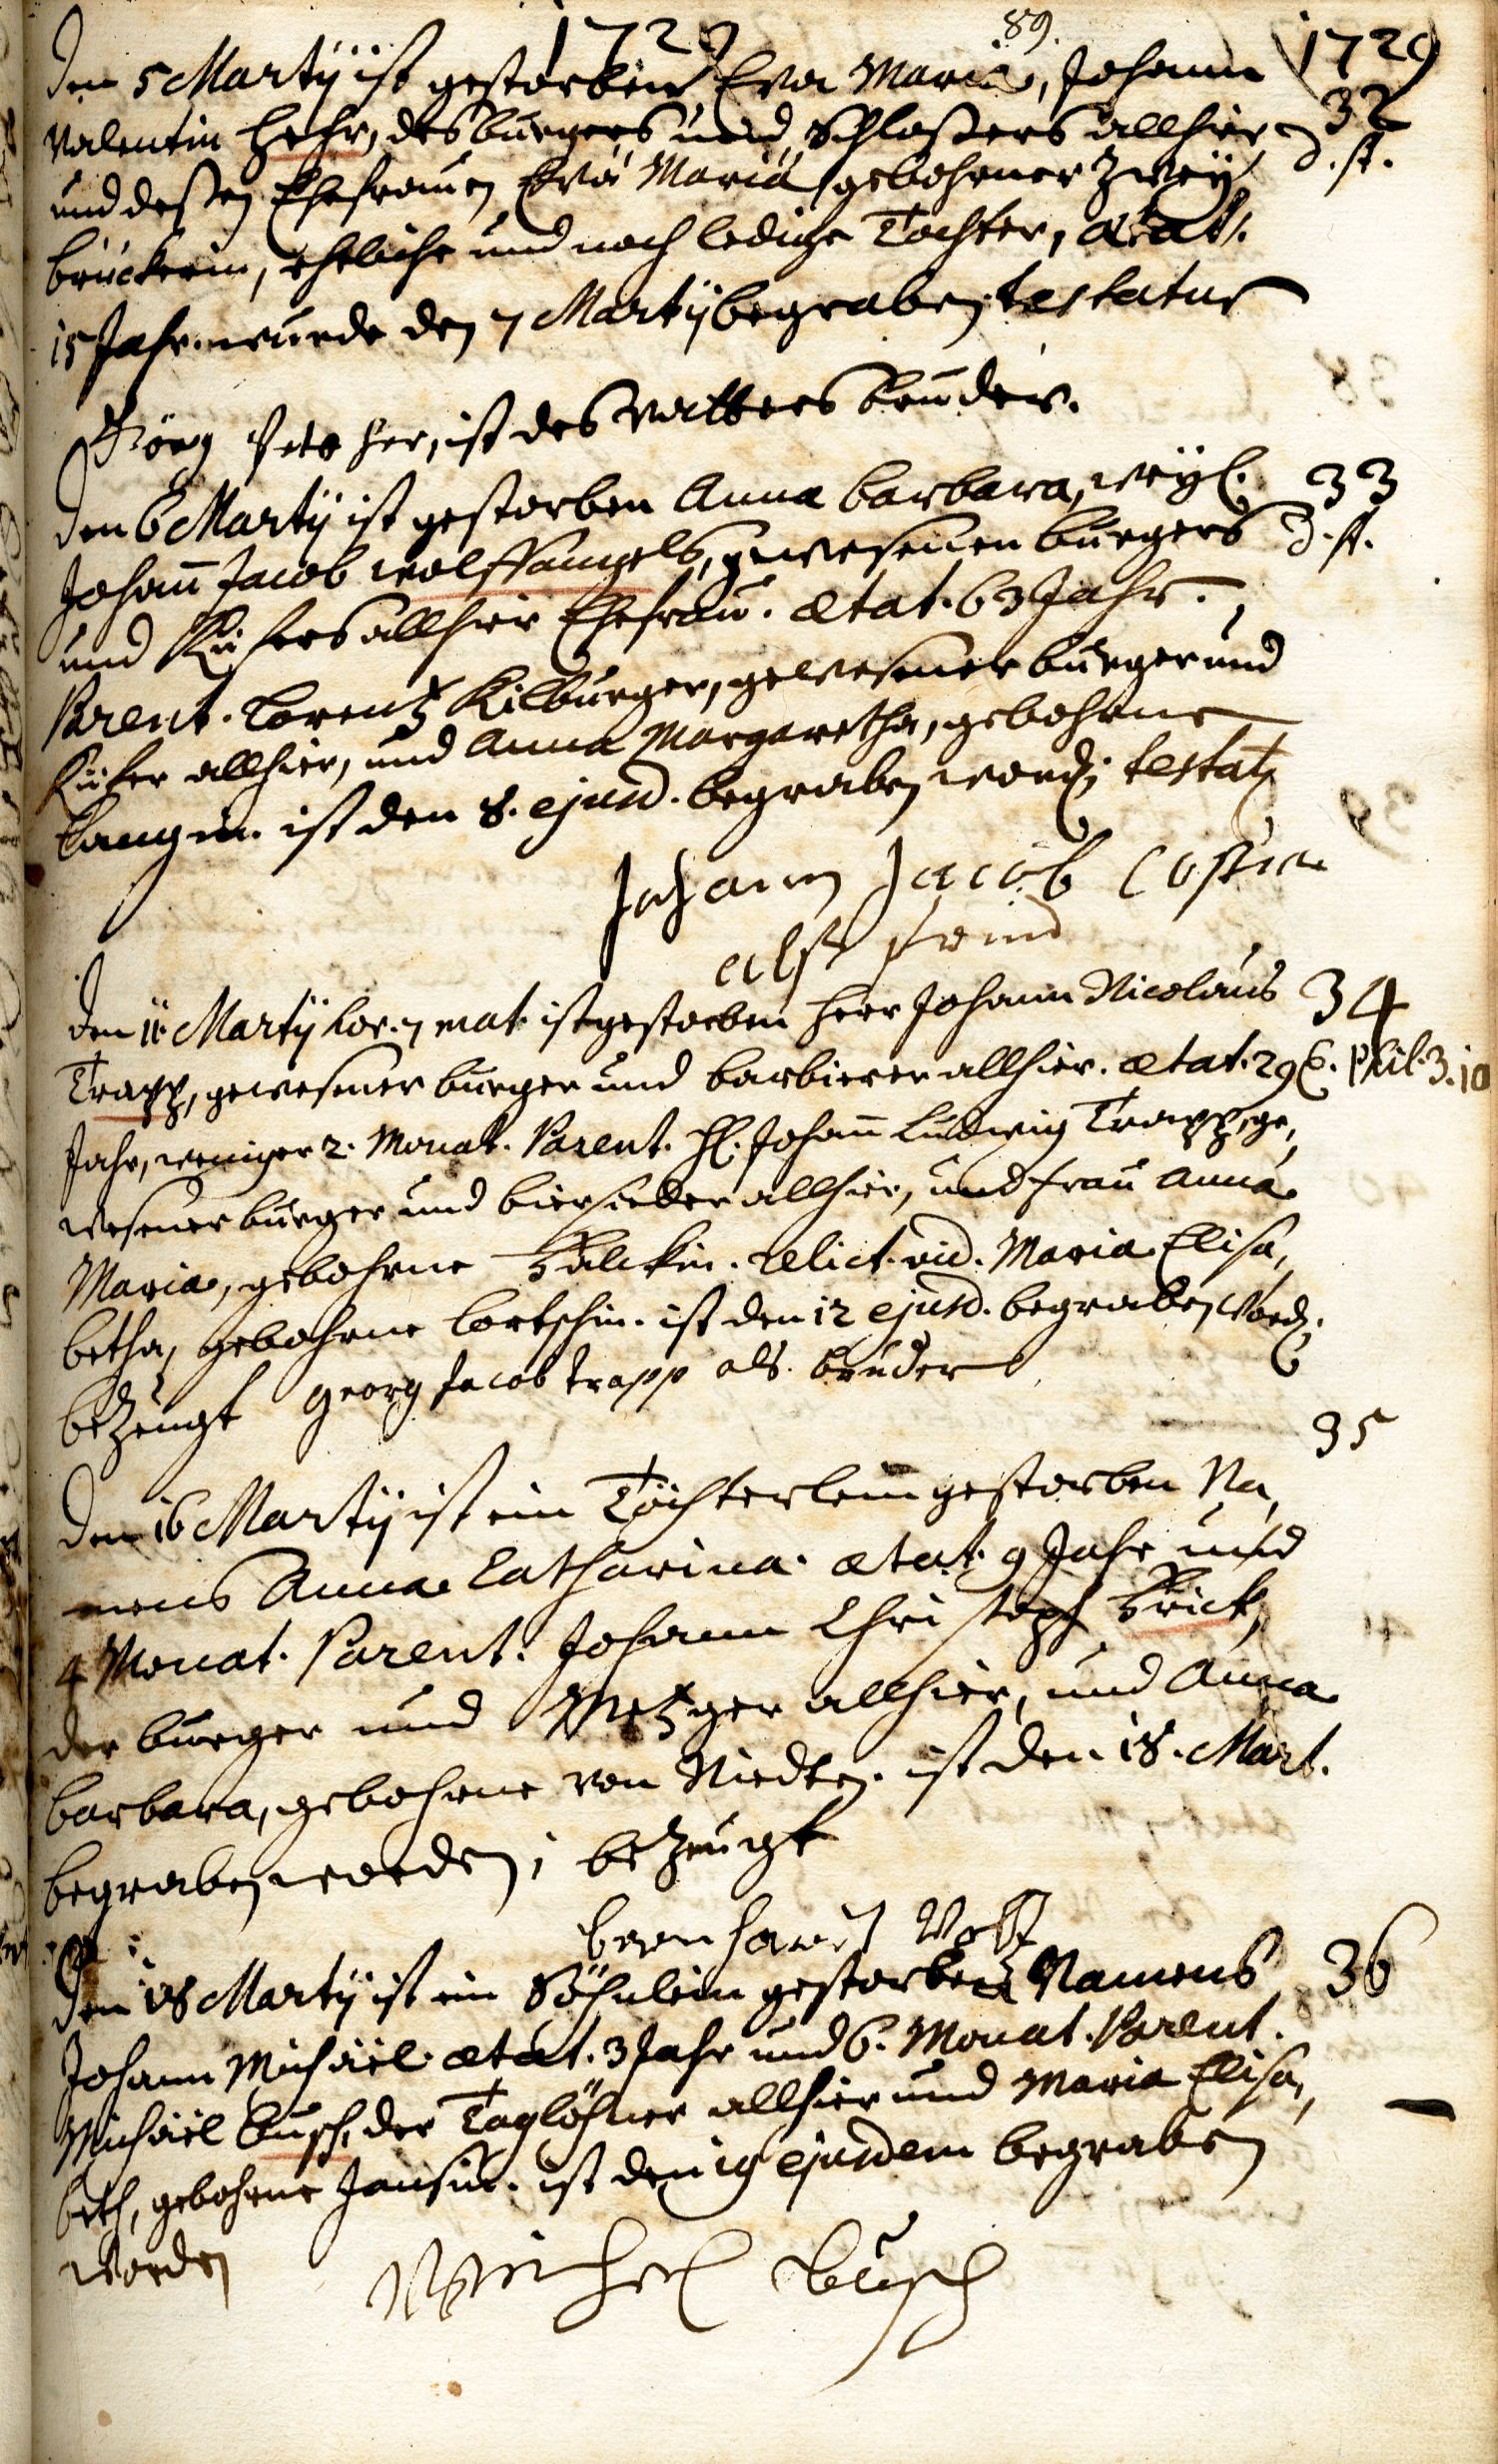 1729 89. 1729
Den 5 Martij ist gestorben Eva Maria, Johann
Valentin Hehr, des burgers und Schloßers allhier 32
und deßen Ehefrauen Eva Maria gebohrner Zwey, d. st.
brückerin, eheliche und noch ledige Tochter, ætat.
15 Jahr. wurde den 7 Martij begraben, testatur
Görg her, ist des Vatters bruder.
Den 6 Martij ist gestorben Anna Barbara, weyl. 33
Johann Jacob Wolffangels, gewesenen burgers d. st.
und Küfers allhier Ehefrau. ætat. 63 Jahr.
Parent. Lorentz Kilburger, gewesener burger und
Küfer allhier, und Anna Margaretha, gebohrne
Langin. ist den 8. ejusd. begraben word; testat
Johann Jacob
alß freind
Den 11 Martij hor. 7 mat. ist gestorben Herr Johann Nicolaus 34
Trapp, gewesener burger und barbierer allhier. ætat. 29 Phil. 3. 10
Jahr, weniger 2. Monat. Parent. H. Johann Ludwig Trapp, ge,
wesener burger und biersieder allhier, und Frau Anna
Maria, gebohrne relict. vid. Maria Elisa,
betha, gebohrne Lortschin. ist den 12 ejusd. begraben word.
bezeugt Georg Jacob Trapp als bruder
35
Den 16 Martij ist ein Töchterlein gestorben Na,
mens Anna Catharina. ætat. 9 Jahr und
4 Monat. Parent. Johann Christoph Brick,
der burger und Metzger allhier, und Anna
Barbara, gebohrne von Niedten. ist den 18. Mart.
begraben worden; bezeugt
bernhard Voltz
Den 18 Martij ist ein Söhnlein gestorben Namens 36
Johann Michael. ætat. 3 Jahr und 6. Monat. Parent.
Michael Busch, der Taglöhner allhier und Maria Elisa,
beth, gebohrne Jansin. ist den 19 ejusdem begraben
worden Michel Busch